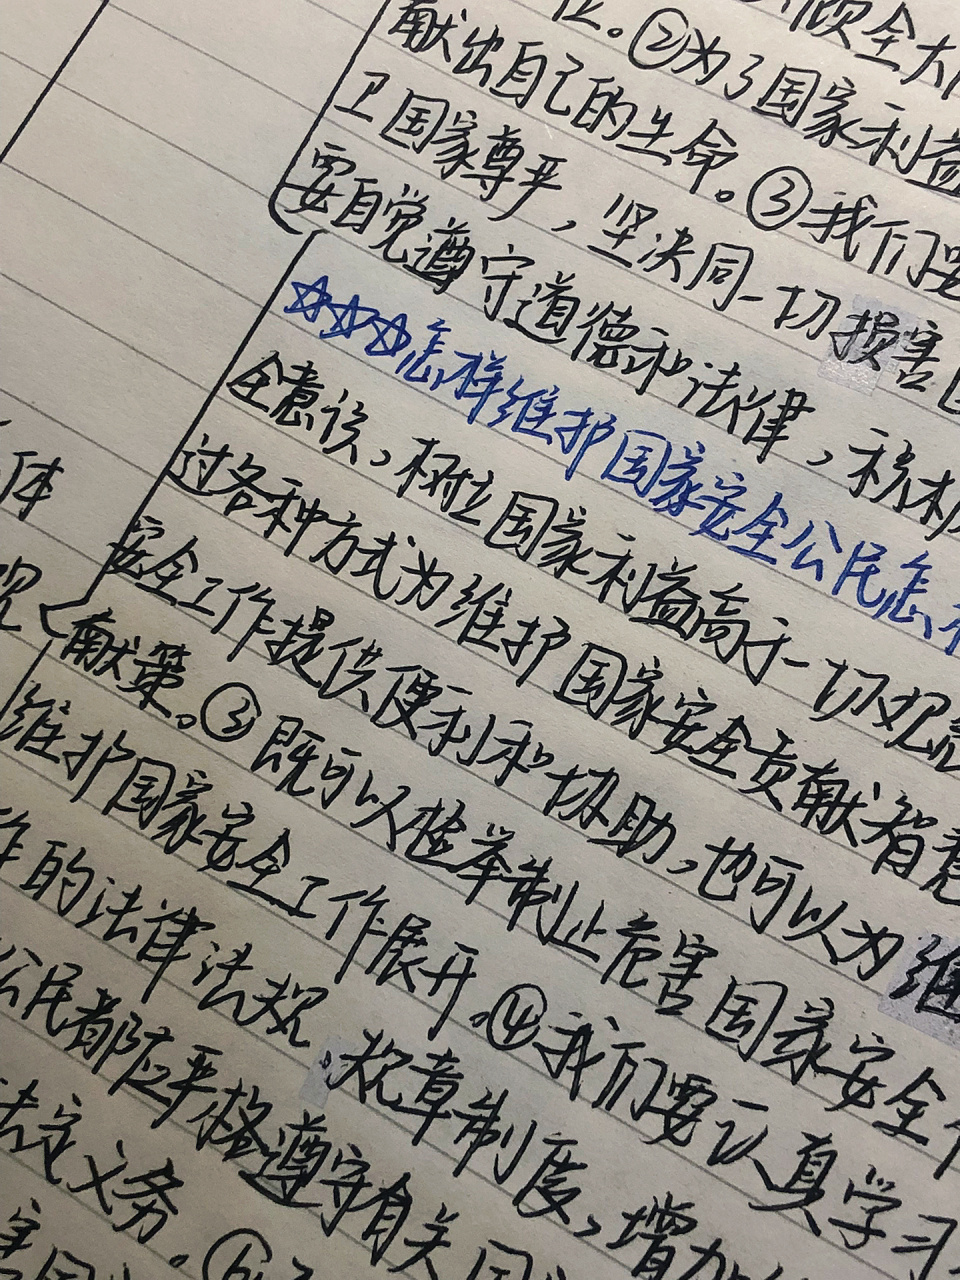 顾全大
位。②为了国家利益
献出自己的生命。③我们要
卫国家尊严，坚决同一切损害国
要自觉遵守道德和法律，积极
☆☆☆怎样维护国家安全公民怎
全意识，树立国家利益高于一切观念
过各种方式为维护国家安全贡献智慧
安全工作提供便利和协助，也可以为维
献策。③既可以检举制止危害国家安全
维护国家安全工作展开。④我们要认真学习
作的法律法规、规章制度，增力
公民都应严格遵守有关国
法定义务。⑥
体
观